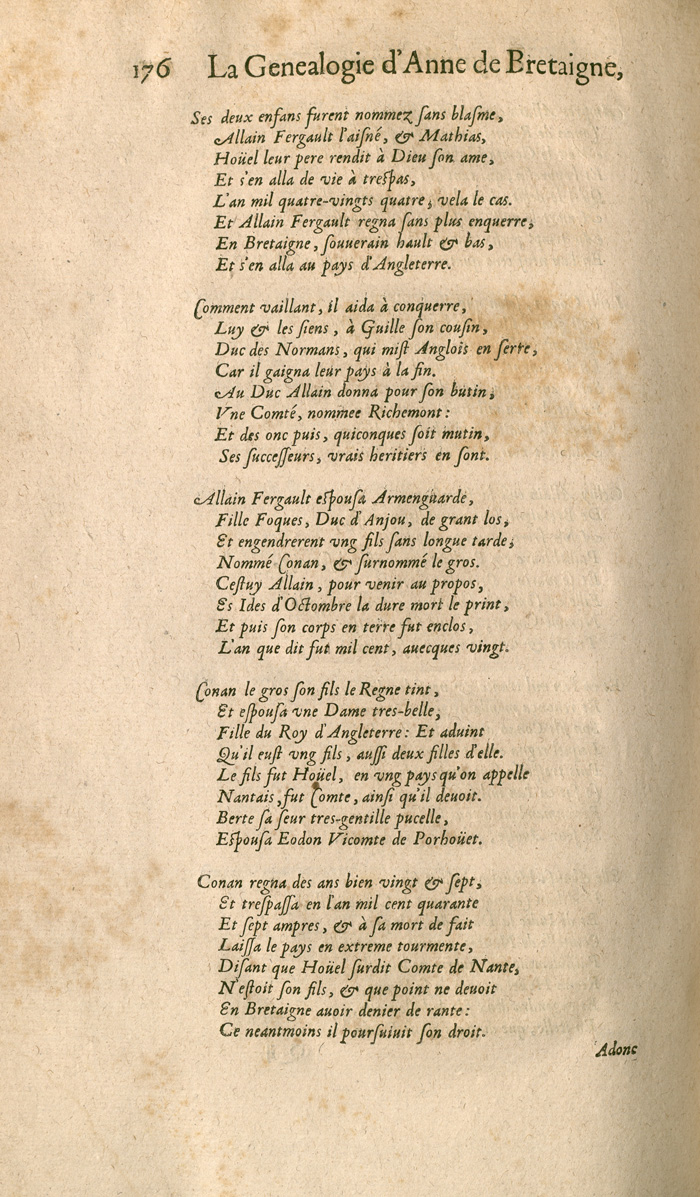 176 La Genealogie d'Anne de Bretaigne,
Ses deux enfans furent nommez ſans blaſme,
Allain Fergault l'aiſné, & Mathias,
Hoüel leur pere rendit à Dieu ſon ame,
Et s'en alla de vie à treſpas,
L'an mil quatre-vingts quatre, vela le cas.
Et Allain Fergault regna ſans plus enquerre,
En Bretaigne, ſouuerain hault & bas,
Et s'en alla au pays d'Angleterre.
Comment vaillant, il aida à conquerre,
Luy & les ſiens, à Guille ſon couſin,
Duc des Normans, qui miſt Anglois en ſerre,
Car il gaigna leur pays à la fin.
Au Duc Allain donna pour ſon butin,
Vne Comté, nommee Richemont:
Et des onc puis, quiconques ſoit mutin,
Ses ſucceſſeurs, vrais heritiers en ſont.
Allain Fergault eſpouſa Armenguarde,
Fille Foques, Duc d'Anjou, de grant los,
Et engendrerent vng fils ſans longue tarde,
Nommé Conan, & ſurnommé le gros.
Ceſtuy Allain, pour venir au propos,
Es Ides d'Octombre la dure mort le print,
Et puis ſon corps en terre fut enclos,
L'an que dit fut mil cent, auecques vingt.
Conan le gros ſon fils le Regne tint,
Et eſpouſa vne Dame tres-belle,
Fille du Roy d'Angleterre: Et aduint
Qu'il euſt vng fils, auſſi deux filles d'elle.
Le fils fut Hoüel, en vng pays qu'on appelle
Nantais, fut Comte, ainſi qu'il deuoit.
Berte ſa ſeur tres-gentille pucelle,
Eſpouſa Eodon Vicomte de Porhoüet.
Conan regna des ans bien vingt & ſept,
Et treſpaſſa en l'an mil cent quarante
Et ſept ampres, & à ſa mort de fait
Laiſſa le pays en extreme tourmente,
Diſant que Hoüel ſurdit Comte de Nante,
N'eſtoit ſon fils, & que point ne deuoit
En Bretaigne auoir denier de rante:
Ce neantmoins il pourſuiuit ſon droit.
Adonc